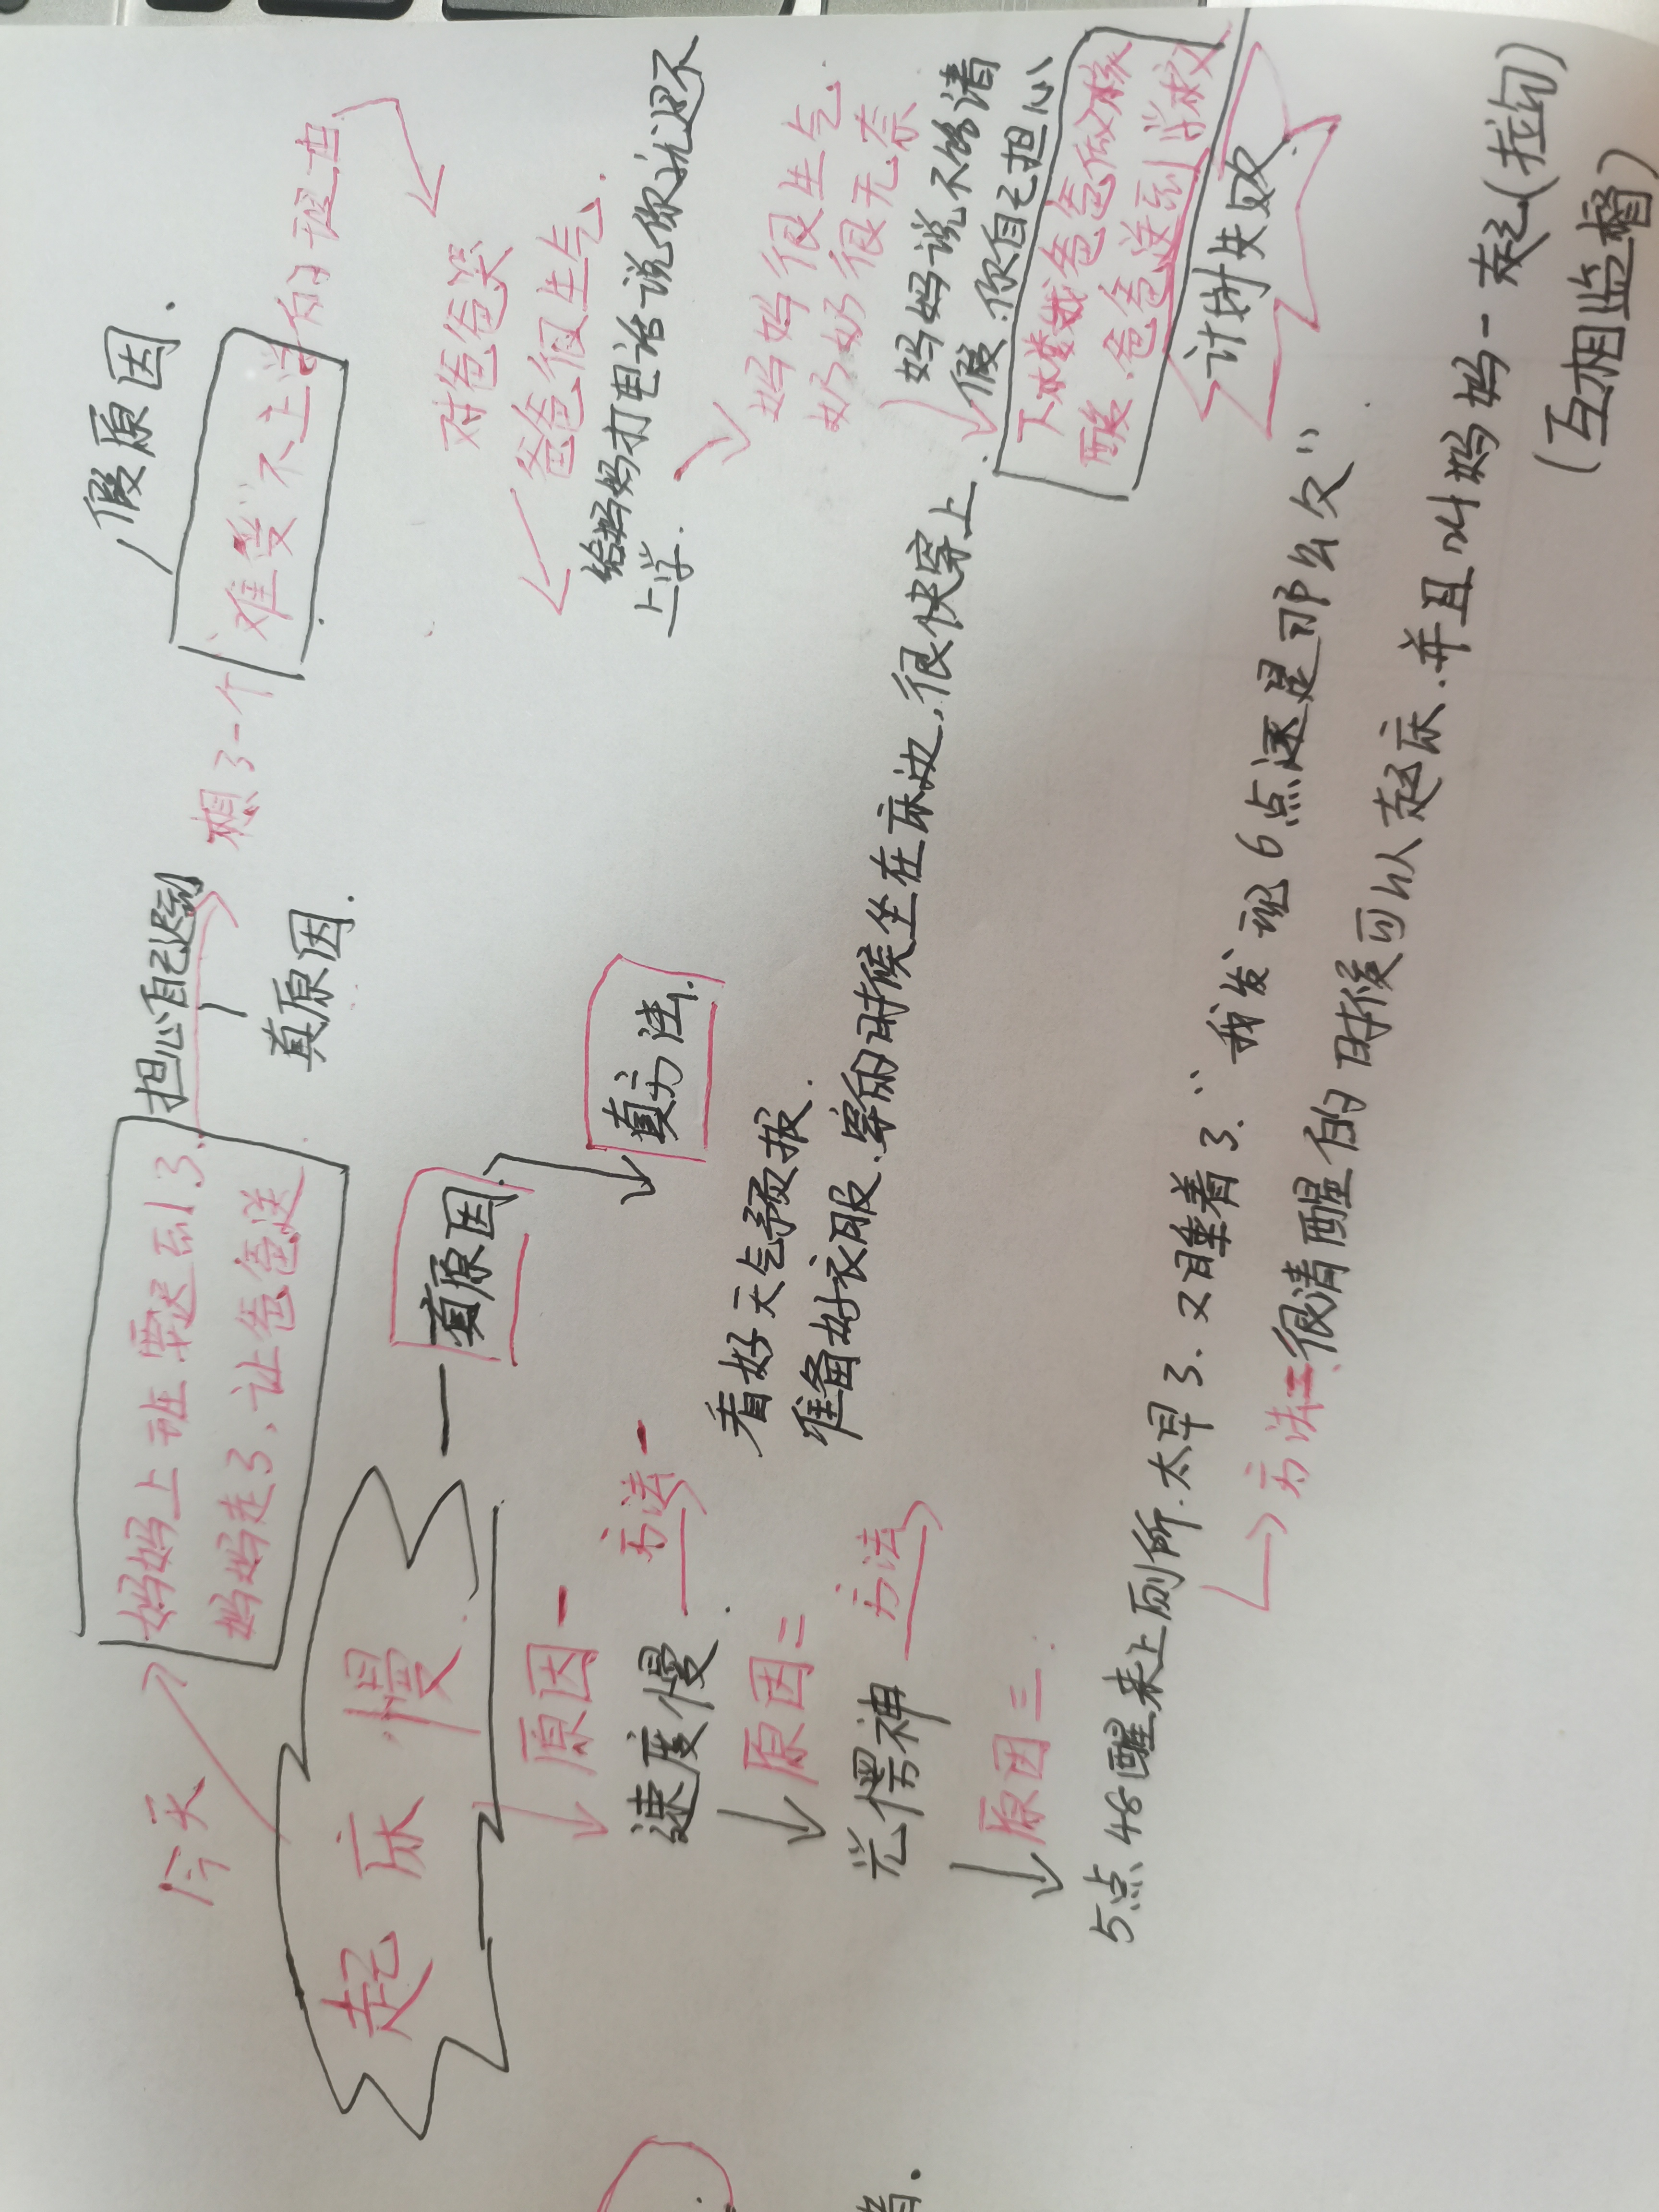 今天
妈妈上班要迟到了.
妈妈走了、让爸爸送
担心自己迟到
真原因.
想了一个
假原因.
"难受"不上学的理由
对爸爸哭
爸爸很生气.
给妈妈打电话说你就还不
上学.
妈妈很生气
奶奶很无奈
妈妈说不能请
假.你自己担心
下楼找爸爸做核
酸、爸爸送到学校
计划失败
起床慢
真原因.
真方法.
原因一
速度慢.
方法一
看好天气预报.
准备好衣服.穿的时候坐在床边,很快穿上.
原因二
发愣神
方法
原因三.
5点48醒来上厕所.太早了.又睡着了."我发现6点还是那么欠"
方法二 很清醒的时候可以起床.并且叫妈妈一起(拉勾)
(互相监督)